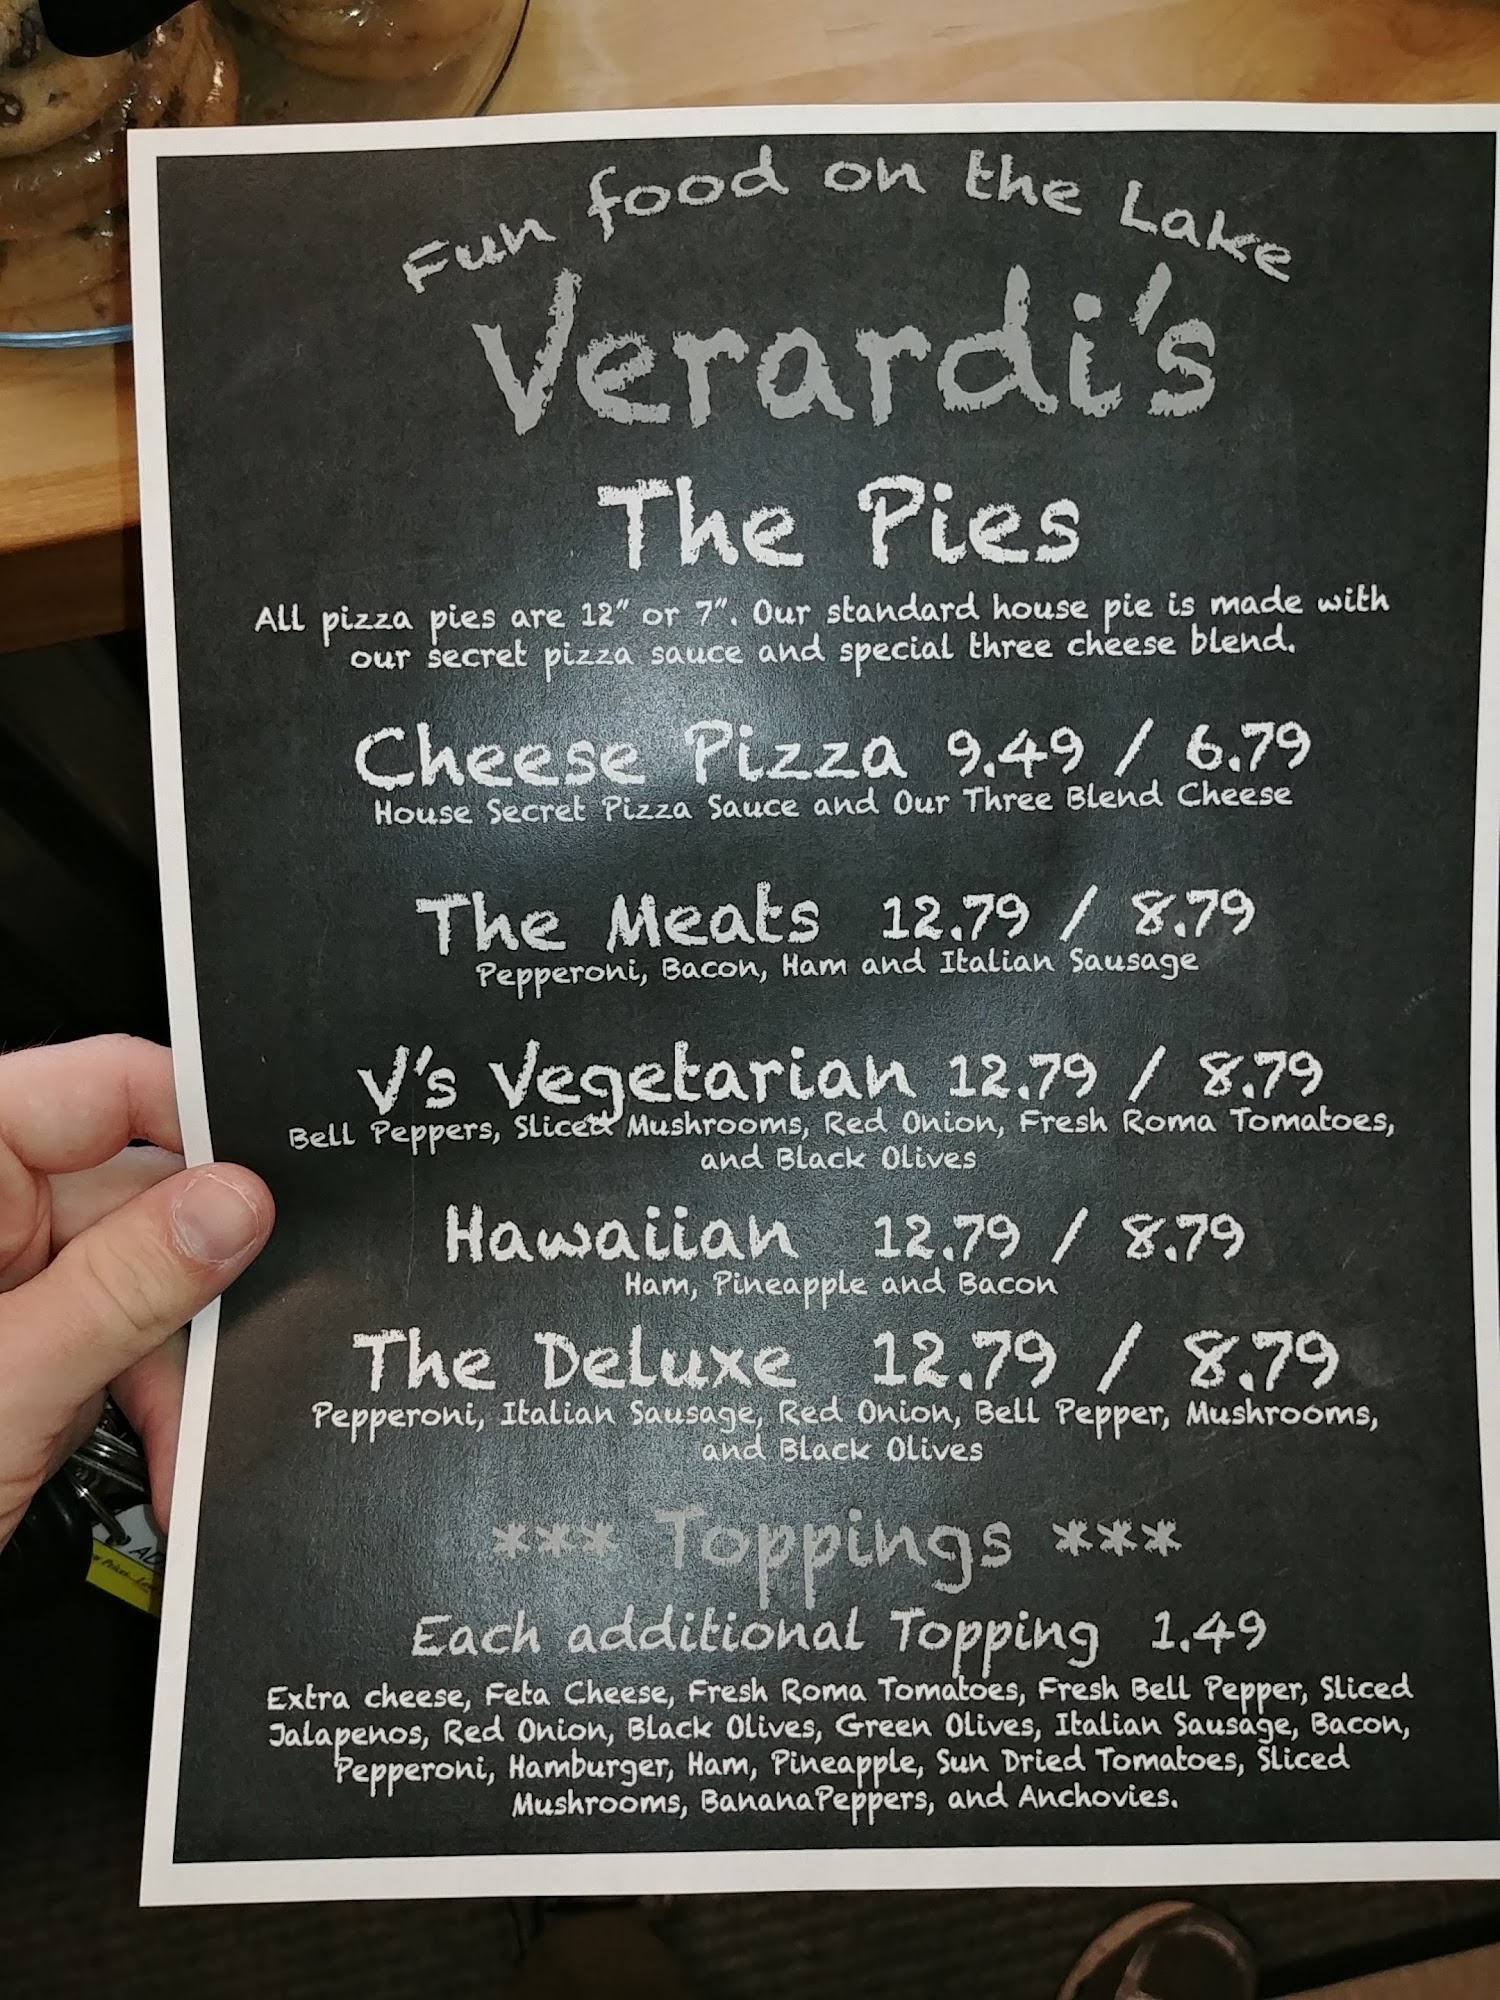 Fun food on the Lake
Verardi's
The Pies
All pizza pies are 12" or 7". Our standard house pie is made with
our secret pizza sauce and special three cheese blend.
Cheese Pizza 9.49 / 6.79
House Secret Pizza Sauce and Our Three Blend Cheese
The Meats 12.79 / 8.79
Pepperoni, Bacon, Ham and Italian Sausage
V's Vegetarian 12.79 / 8.79
Bell Peppers, Sliced Mushrooms, Red Onion, Fresh Roma Tomatoes,
and Black Olives
Hawaiian 12.79 / 8.79
Ham, Pineapple and Bacon
The Deluxe 12.79 / 8.79
Pepperoni, Italian Sausage, Red Onion, Bell Pepper, Mushrooms,
and Black Olives
*** Toppings ***
Each additional Topping 1.49
Extra cheese, Feta Cheese, Fresh Roma Tomatoes, Fresh Bell Pepper, Sliced
Jalapenos, Red Onion, Black Olives, Green Olives, Italian Sausage, Bacon,
Pepperoni, Hamburger, Ham, Pineapple, Sun Dried Tomatoes, Sliced
Mushrooms, BananaPeppers, and Anchovies.